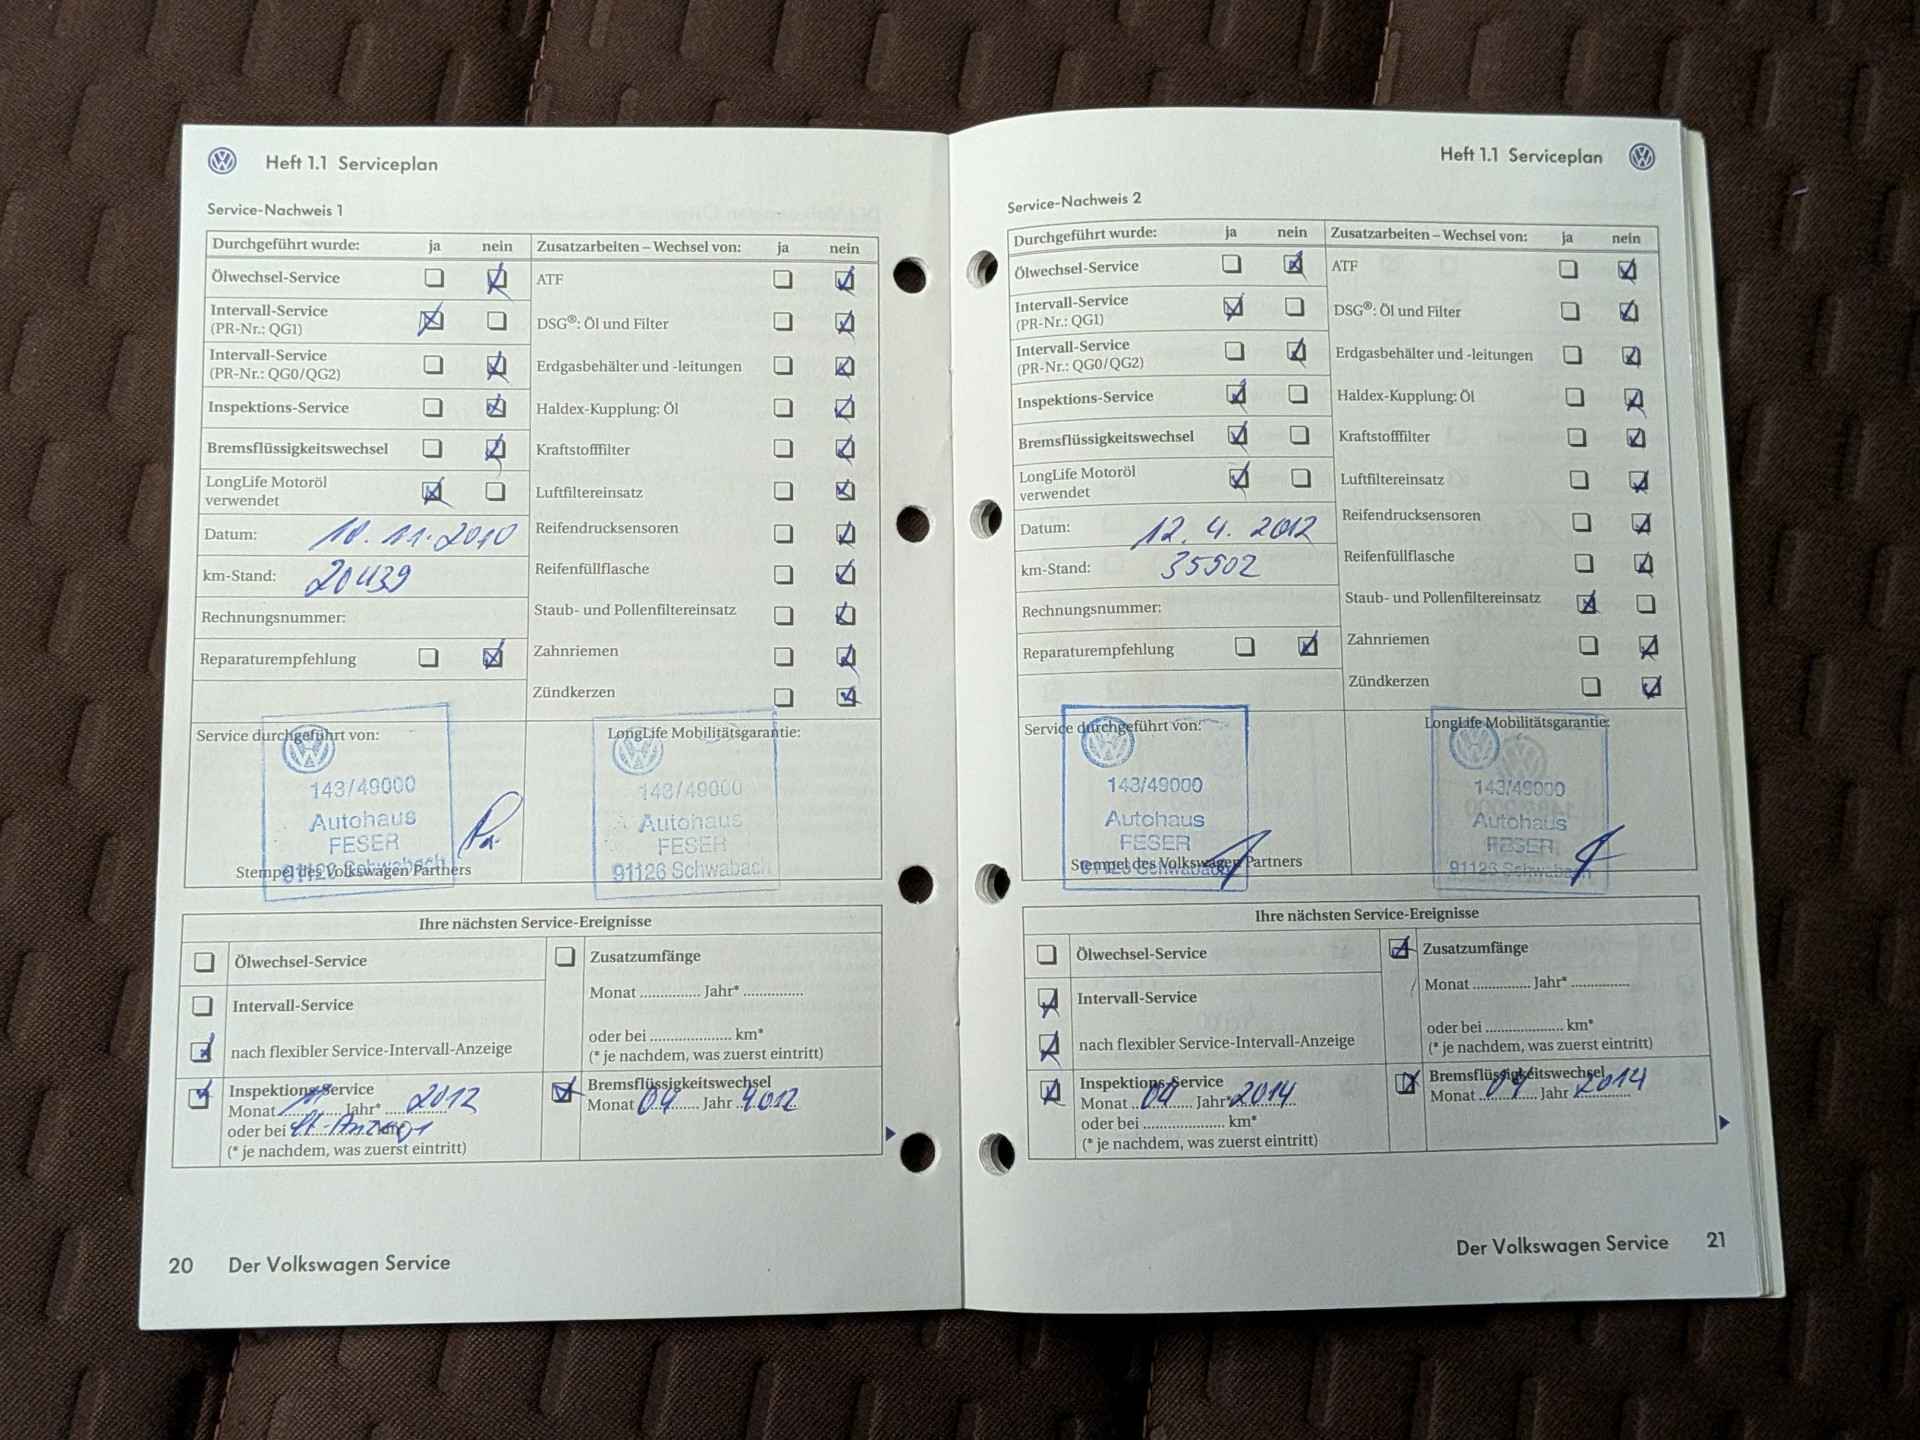 Heft 1.1 Serviceplan
Service-Nachweis 1
Durchgeführt wurde: ja nein Zusatzarbeiten – Wechsel von: ja nein
Ölwechsel-Service ATF
Intervall-Service
(PR-Nr.: QG1) DSG®: Öl und Filter
Intervall-Service
(PR-Nr.: QG0/QG2) Erdgasbehälter und -leitungen
Inspektions-Service Haldex-Kupplung: Öl
Bremsflüssigkeitswechsel Kraftstofffilter
LongLife Motoröl
verwendet Luftfiltereinsatz
Datum: 18.11.2010 Reifendrucksensoren
km-Stand: 20439 Reifenfüllflasche
Rechnungsnummer: Staub- und Pollenfiltereinsatz
Reparaturempfehlung Zahnriemen
Zündkerzen
Service durchgeführt von: LongLife Mobilitätsgarantie:
143/49000 143/49000
Autohaus Autohaus
FESER FESER
91126 Schwabach 91126 Schwabach
Stempel des Volkswagen Partners
Ihre nächsten Service-Ereignisse
Ölwechsel-Service Zusatzumfänge
Monat ............... Jahr* ...............
Intervall-Service
oder bei .................... km*
nach flexibler Service-Intervall-Anzeige (* je nachdem, was zuerst eintritt)
Inspektions-Service Bremsflüssigkeitswechsel
Monat Jahr* 2012 Monat 04 Jahr 2012
oder bei
(* je nachdem, was zuerst eintritt)
20 Der Volkswagen Service
Heft 1.1 Serviceplan
Service-Nachweis 2
Durchgeführt wurde: ja nein Zusatzarbeiten – Wechsel von: ja nein
Ölwechsel-Service ATF
Intervall-Service
(PR-Nr.: QG1) DSG®: Öl und Filter
Intervall-Service
(PR-Nr.: QG0/QG2) Erdgasbehälter und -leitungen
Inspektions-Service Haldex-Kupplung: Öl
Bremsflüssigkeitswechsel Kraftstofffilter
LongLife Motoröl
verwendet Luftfiltereinsatz
Datum: 12.4.2012 Reifendrucksensoren
km-Stand: 35502 Reifenfüllflasche
Rechnungsnummer: Staub- und Pollenfiltereinsatz
Reparaturempfehlung Zahnriemen
Zündkerzen
Service durchgeführt von: LongLife Mobilitätsgarantie:
143/49000 143/49000
Autohaus Autohaus
FESER FESER
Stempel des Volkswagen Partners
91126 Schwabach 91126 Schwabach
Ihre nächsten Service-Ereignisse
Ölwechsel-Service Zusatzumfänge
Monat ............... Jahr* ...............
Intervall-Service
oder bei .................... km*
nach flexibler Service-Intervall-Anzeige (* je nachdem, was zuerst eintritt)
Inspektions-Service Bremsflüssigkeitswechsel
Monat 04 Jahr* 2014 Monat 04 Jahr 2014
oder bei .................... km*
(* je nachdem, was zuerst eintritt)
Der Volkswagen Service 21